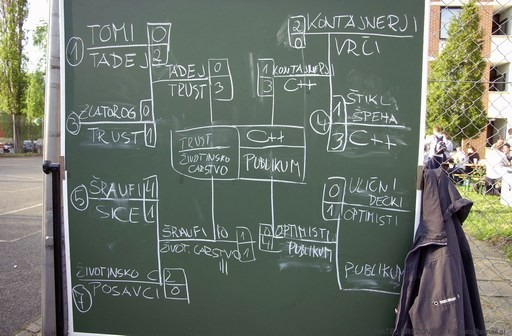 ① TOMI 0
TADEJ 2
③ ZLATOROG 0
TRUST 1
⑤ ŠRAUFI 4
SICE 1
ŽIVOTINJSKO C. 2
⑦ POSAVCI 0
TADEJ 0
TRUST 3
ŠRAUFI 0
ŽIVOT. CARSTVO 1
TRUST
ŽIVOTINJSKO
CARSTVO
C++
PUBLIKUM
1 KONTAJNERJI
3 C++
OPTIMISTI
4 PUBLIKUM
2 KONTAJNERJI
0 VRČI
④ 1 ŠTIKL.
ŠPEHA
3 C++
0 ULIČNI
DEČKI
1 OPTIMISTI
PUBLIKUM